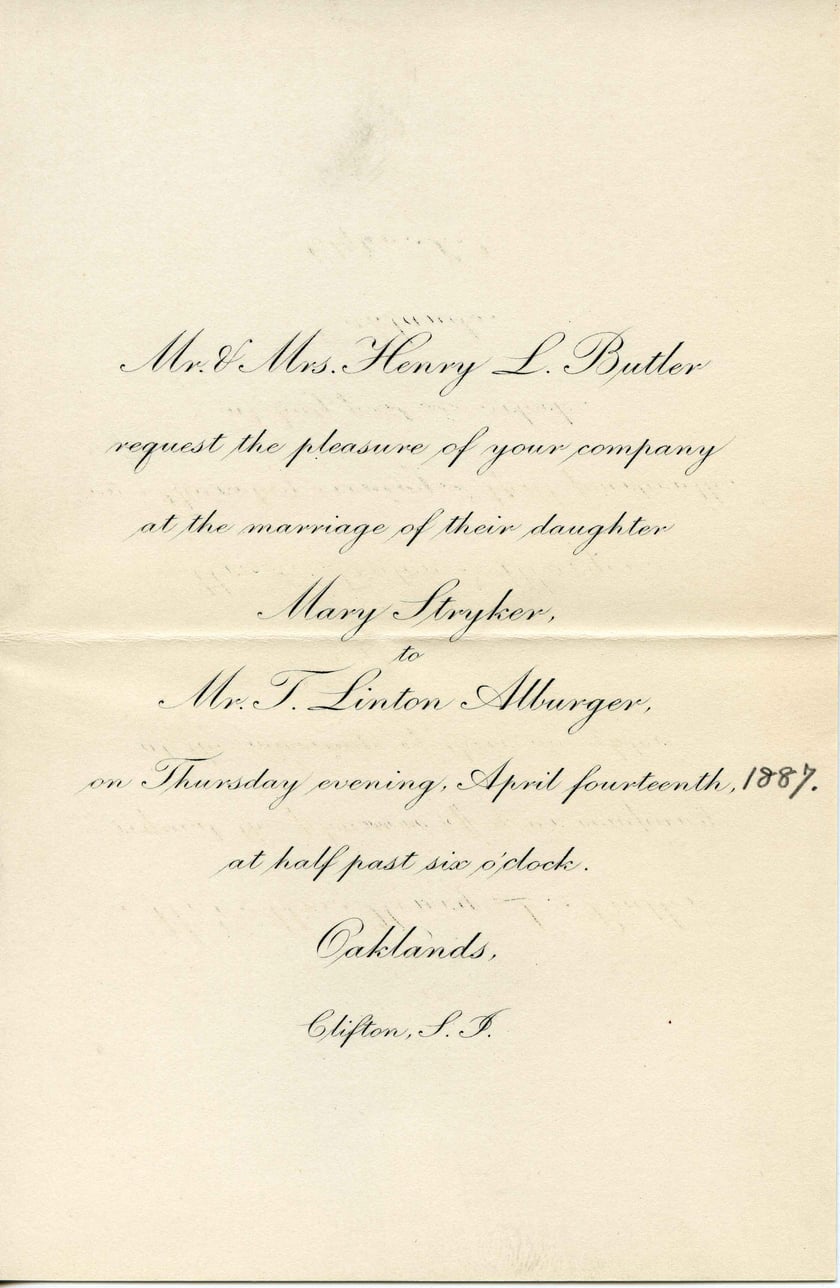 Mr. & Mrs. Henry L. Butler
request the pleasure of your company
at the marriage of their daughter
Mary Stryker,
to
Mr. T. Linton Alburger,
on Thursday evening, April fourteenth, 1887.
at half past six o'clock.
Oaklands,
Clifton, S. I.